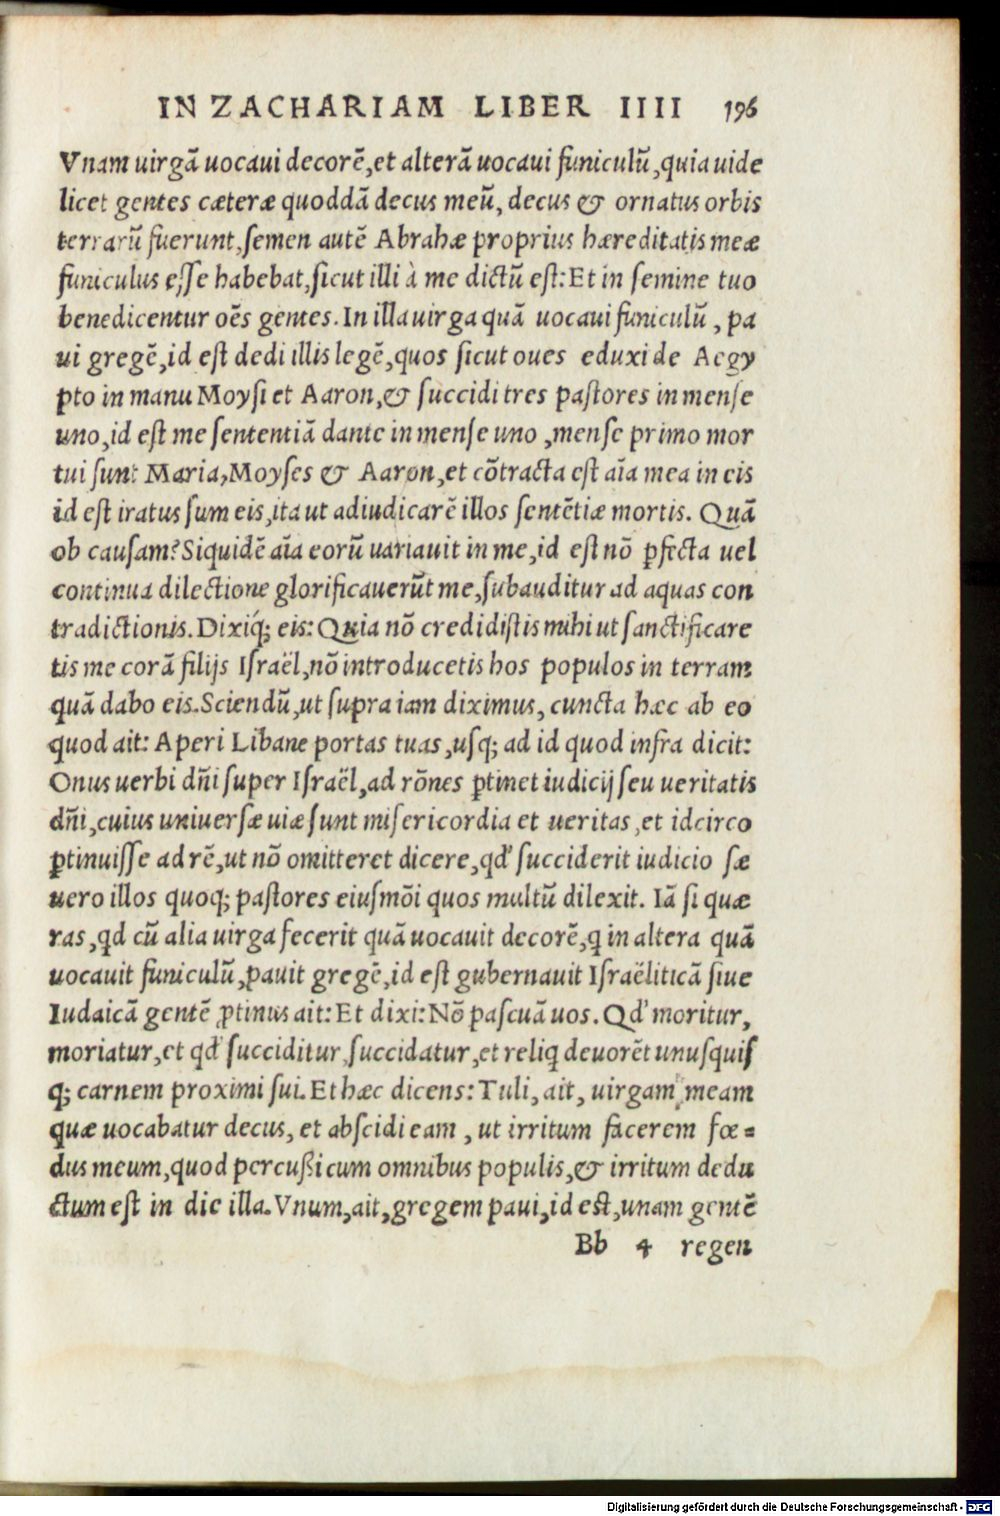 IN ZACHARIAM LIBER IIII 196
Vnam uirgã uocaui decorẽ, et alterã uocaui funiculũ, quia uide
licet gentes cæteræ quoddã decus meũ, decus & ornatus orbis
terrarũ fuerunt, semen autẽ Abrahæ proprius hæreditatis meæ
funiculus esse habebat, sicut illi à me dictũ est: Et in semine tuo
benedicentur oẽs gentes. In illa uirga quã uocaui funiculũ, pa
ui gregẽ, id est dedi illis legẽ, quos sicut oues eduxi de Aegy
pto in manu Moysi et Aaron, & succidi tres pastores in mense
uno, id est me sententiã dante in mense uno, mense primo mor
tui sunt Maria, Moyses & Aaron, et cõtracta est aĩa mea in eis
id est iratus sum eis, ita ut adiudicarẽ illos sentẽtiæ mortis. Quã
ob causam? Siquidẽ aĩa eorũ uariauit in me, id est nõ ꝑfecta uel
continua dilectione glorificauerũt me, subauditur ad aquas con
tradictionis. Dixiq́; eis: Quia nõ credidistis mihi ut sanctificare
tis me corã filijs Israël, nõ introducetis hos populos in terram
quã dabo eis. Sciendũ, ut supra iam diximus, cuncta hæc ab eo
quod ait: Aperi Libane portas tuas, usq; ad id quod infra dicit:
Onus uerbi dñi super Israël, ad rõnes ꝑtinet iudicij seu ueritatis
dñi, cuius uniuersæ uiæ sunt misericordia et ueritas, et idcirco
ꝑtinuisse ad rẽ, ut nõ omitteret dicere, qđ succiderit iudicio sæ
uero illos quoq; pastores eiusmõi quos multũ dilexit. Iã si quæ
ras, qd cũ alia uirga fecerit quã uocauit decorẽ, q in altera quã
uocauit funiculũ, pauit gregẽ, id est gubernauit Israëliticã siue
Iudaicã gentẽ ꝓtinus ait: Et dixi: Nõ pascuã uos. Qđ moritur,
moriatur, et qđ succiditur, succidatur, et reliq deuorẽt unusquis
q; carnem proximi sui. Et hæc dicens: Tuli, ait, uirgam meam
quæ uocabatur decus, et abscidi eam, ut irritum facerem fœ=
dus meum, quod percußi cum omnibus populis, & irritum dedu
ctum est in die illa. Vnum, ait, gregem paui, id est, unam gentẽ
Bb 4 regen
Digitalisierung gefördert durch die Deutsche Forschungsgemeinschaft - DFG